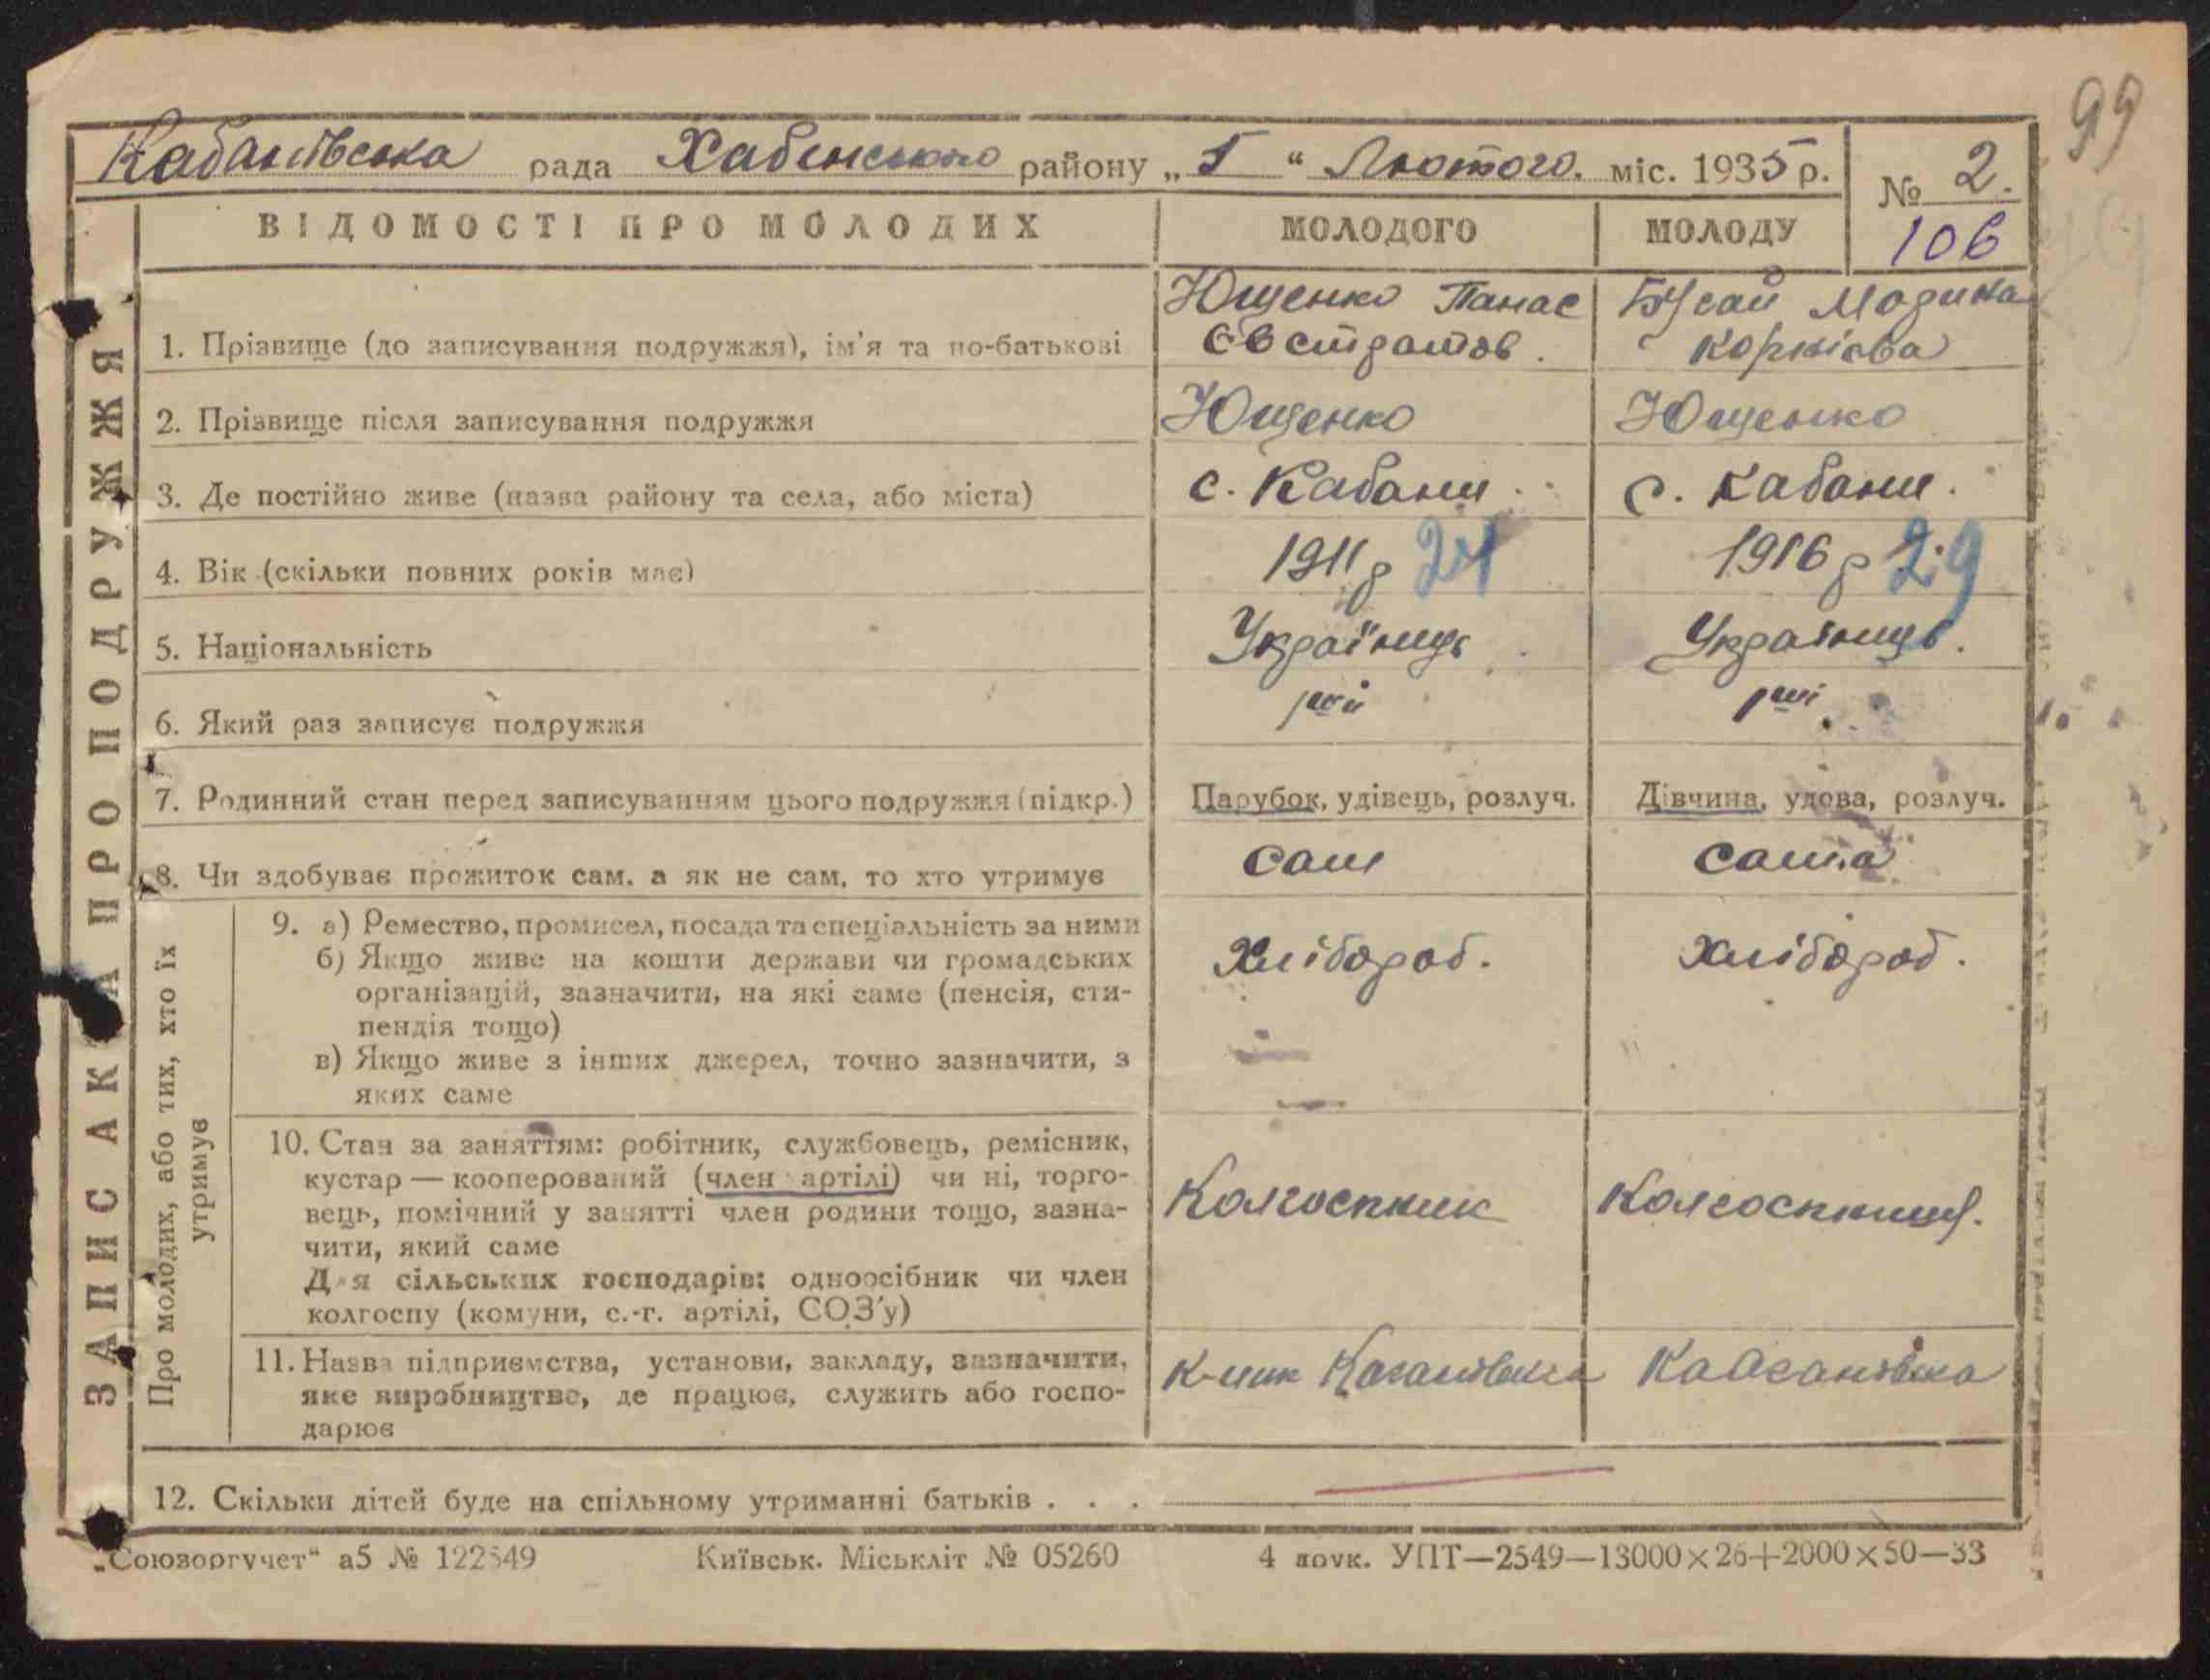 99
Кабанівська рада Хабенського району „5“ Лютого. міс. 1935 р.
№ 2.
106
ВІДОМОСТІ ПРО МОЛОДИХ
МОЛОДОГО
МОЛОДУ
ЗАПИСКА ПРО ПОДРУЖЖЯ
1. Прізвище (до записування подружжя), ім'я та по-батькові
Ющенко Панас
Євстратов.
Бусай
2. Прізвище після записування подружжя
Ющенко
Ющенко
3. Де постійно живе (назва району та села, або міста)
с. Кабани.
с. Кабани.
4. Вік (скільки повних років має)
1911 р 24
1916 р 29
5. Національність
Українць
Українць.
6. Який раз записує подружжя
7. Родинний стан перед записуванням цього подружжя (підкр.)
Парубок, удівець, розлуч.
Дівчина, удова, розлуч.
8. Чи здобуває прожиток сам, а як не сам, то хто утримує
сам
сама
Про молодих, або тих, хто їх
утримує
9. а) Ремество, промисел, посада та спеціальність за ними
б) Якщо живе на кошти держави чи громадських
організацій, зазначити, на які саме (пенсія, сти-
пендія тощо)
в) Якщо живе з інших джерел, точно зазначити, з
яких саме
Хлібороб.
Хлібороб.
10. Стан за заняттям: робітник, службовець, ремісник,
кустар — кооперований (член артілі) чи ні, торго-
вець, помічний у занятті член родини тощо, зазна-
чити, який саме
Для сільських господарів: одноосібник чи член
колгоспу (комуни, с.-г. артілі, СОЗ'у)
Колгоспник
Колгоспниця.
11. Назва підприємства, установи, закладу, зазначити,
яке виробництво, де працює, служить або госпо-
дарює
12. Скільки дітей буде на спільному утриманні батьків . . .
„Союзоргучет“ а5 № 122549
Київськ. Міськліт № 05260
4 друк. УПТ—2549—13000×26+2000×50—33